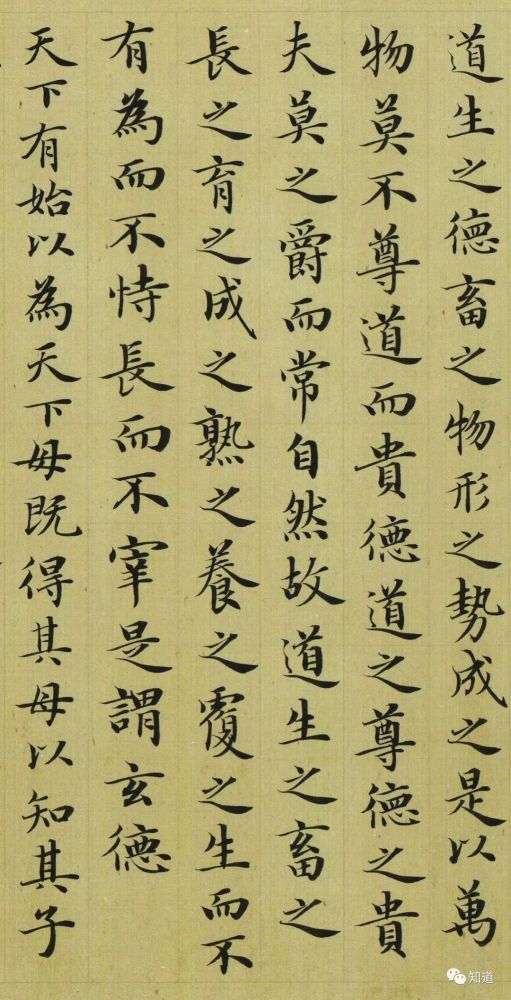 道生之德畜之物形之勢成之是以萬
物莫不尊道而貴德道之尊德之貴
夫莫之爵而常自然故道生之畜之
長之育之成之熟之養之覆之生而不
有為而不恃長而不宰是謂玄德
天下有始以為天下母既得其母以知其子
知道